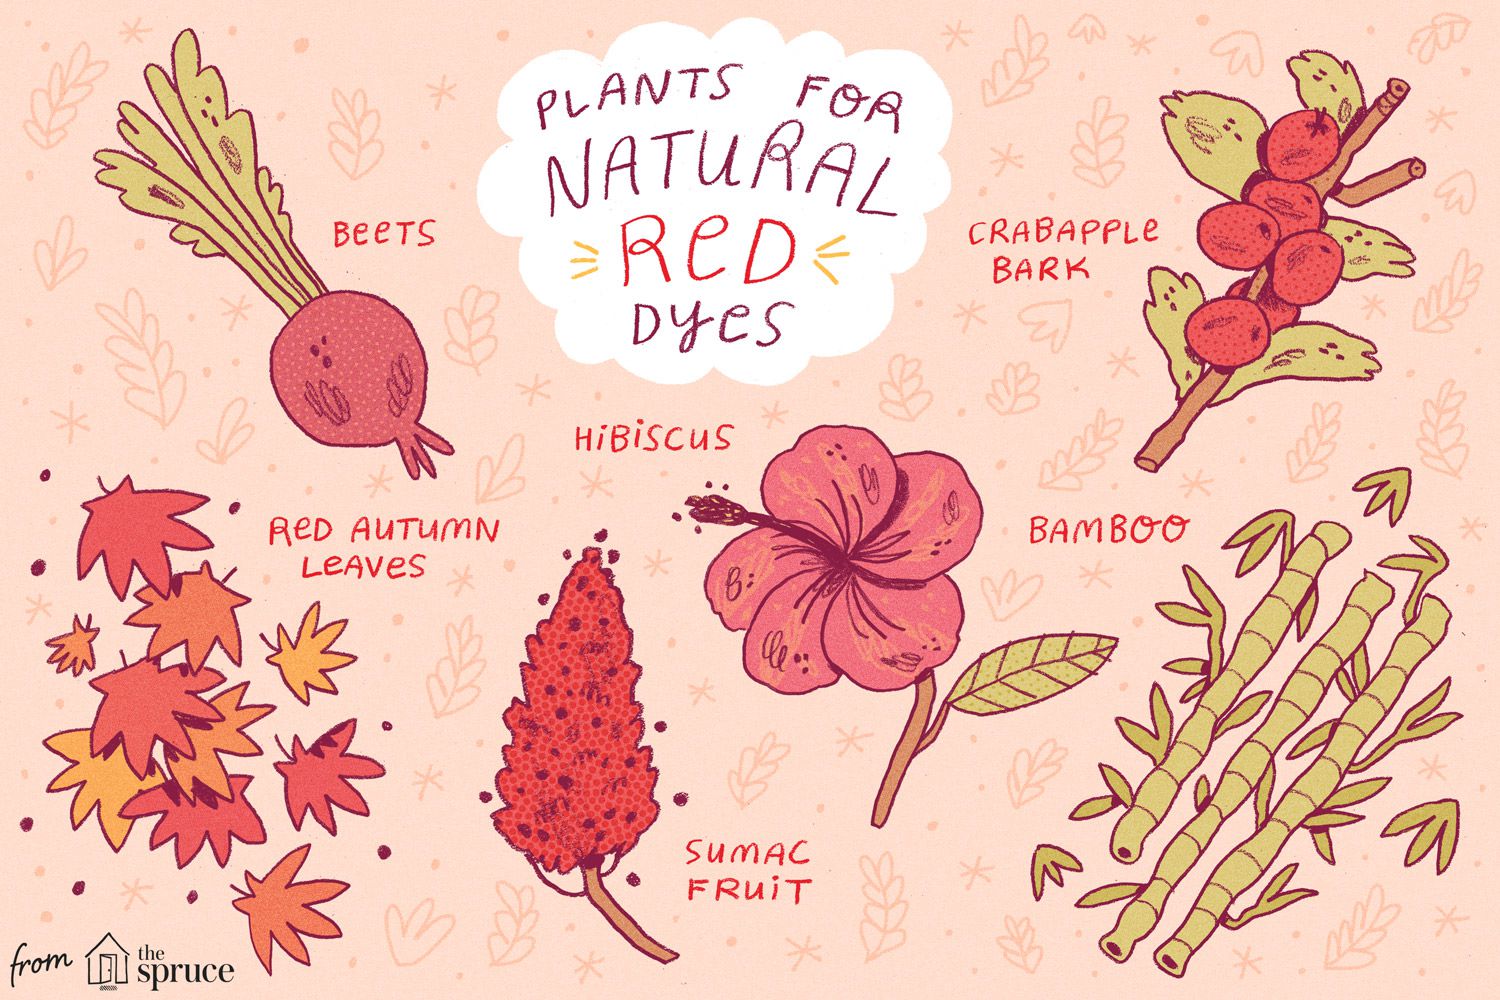 PLANTS FOR
NATURAL
RED
DYES
BEETS
CRABAPPLE
BARK
HIBISCUS
RED AUTUMN
LEAVES
BAMBOO
SUMAC
FRUIT
from
the
spruce